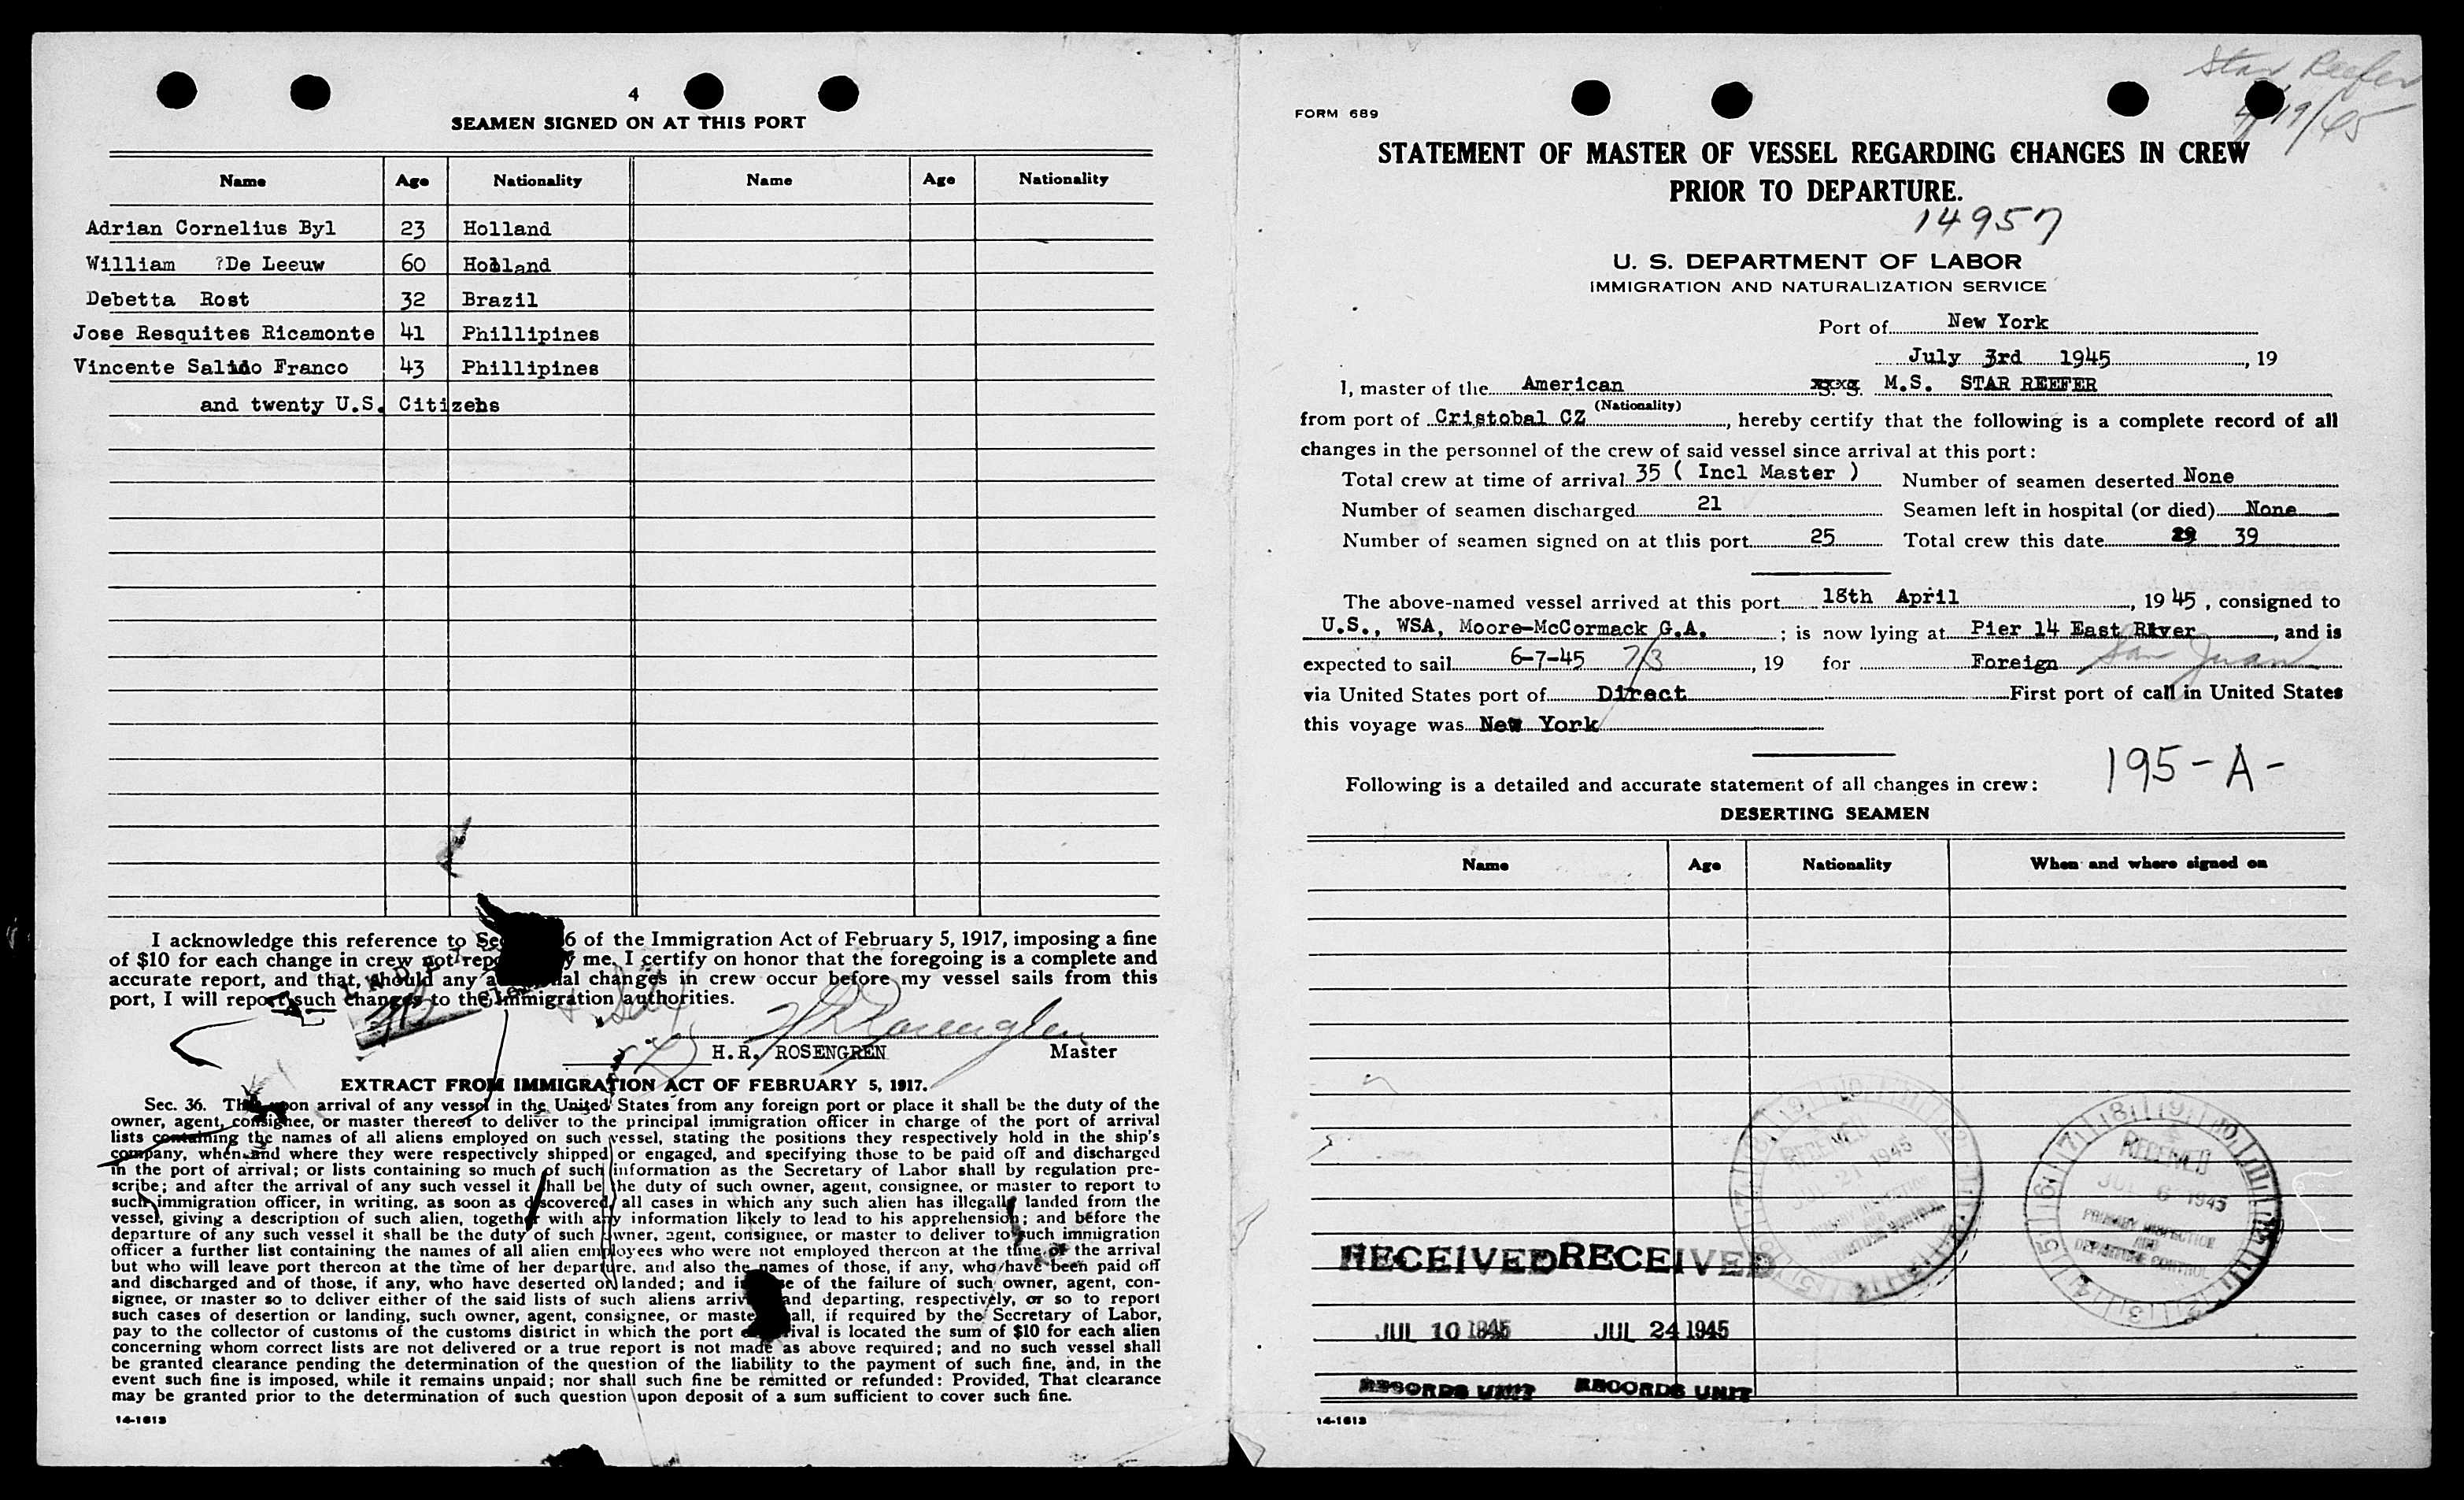 4
SEAMEN SIGNED ON AT THIS PORT
Name Age Nationality Name Age Nationality
Adrian Cornelius Byl 23 Holland
William ?De Leeuw 60 Holland
Debetta Rost 32 Brazil
Jose Resquites Ricamonte 41 Phillipines
Vincente Salido Franco 43 Phillipines
and twenty U.S. Citizens
I acknowledge this reference to 6 of the Immigration Act of February 5, 1917, imposing a fine
of $10 for each change in crew not me. I certify on honor that the foregoing is a complete and
accurate report, and that, should any changes in crew occur before my vessel sails from this
port, I will report such changes to the Immigration authorities.
H.R. ROSENGREN Master
EXTRACT FROM IMMIGRATION ACT OF FEBRUARY 5, 1917.
Sec. 36. upon arrival of any vessel in the United States from any foreign port or place it shall be the duty of the
owner, agent, consignee, or master thereof to deliver to the principal immigration officer in charge of the port of arrival
lists containing the names of all aliens employed on such vessel, stating the positions they respectively hold in the ship's
company, when and where they were respectively shipped or engaged, and specifying those to be paid off and discharged
in the port of arrival; or lists containing so much of such information as the Secretary of Labor shall by regulation pre-
scribe; and after the arrival of any such vessel it shall be the duty of such owner, agent, consignee, or master to report to
such immigration officer, in writing, as soon as discovered, all cases in which any such alien has illegally landed from the
vessel, giving a description of such alien, together with any information likely to lead to his apprehension; and before the
departure of any such vessel it shall be the duty of such owner, agent, consignee, or master to deliver to such immigration
officer a further list containing the names of all alien employees who were not employed thereon at the time of the arrival
but who will leave port thereon at the time of her departure, and also the names of those, if any, who have been paid off
and discharged and of those, if any, who have deserted or landed; and in of the failure of such owner, agent, con-
signee, or master so to deliver either of the said lists of such aliens and departing, respectively, or so to report
such cases of desertion or landing, such owner, agent, consignee, or master if required by the Secretary of Labor,
pay to the collector of customs of the customs district in which the port is located the sum of $10 for each alien
concerning whom correct lists are not delivered or a true report is not made as above required; and no such vessel shall
be granted clearance pending the determination of the question of the liability to the payment of such fine, and, in the
event such fine is imposed, while it remains unpaid; nor shall such fine be remitted or refunded: Provided, That clearance
may be granted prior to the determination of such question upon deposit of a sum sufficient to cover such fine.
14-1613
Star Reefer
4/19/45
FORM 689
STATEMENT OF MASTER OF VESSEL REGARDING CHANGES IN CREW
PRIOR TO DEPARTURE.
14957
U. S. DEPARTMENT OF LABOR
IMMIGRATION AND NATURALIZATION SERVICE
Port of New York
July 3rd 1945, 19
I, master of the American S. S. M.S. STAR REEFER
(Nationality)
from port of Cristobal CZ, hereby certify that the following is a complete record of all
changes in the personnel of the crew of said vessel since arrival at this port:
Total crew at time of arrival 35 ( Incl Master ) Number of seamen deserted None
Number of seamen discharged 21 Seamen left in hospital (or died) None
Number of seamen signed on at this port 25 Total crew this date 39
The above-named vessel arrived at this port 18th April, 1945, consigned to
U.S., WSA, Moore-McCormack G.A.; is now lying at Pier 14 East River, and is
expected to sail 6-7-45 7/3, 19 for Foreign San Juan
via United States port of Direct First port of call in United States
this voyage was New York
195-A-
Following is a detailed and accurate statement of all changes in crew:
DESERTING SEAMEN
Name Age Nationality When and where signed on
RECEIVED
JUL 21 1945
RECEIVED
JUL 6 1945
PRIMARY INSPECTION
AND
DEPARTURE CONTROL
RECEIVED RECEIVED
JUL 10 1945 JUL 24 1945
RECORDS UNIT RECORDS UNIT
14-1613